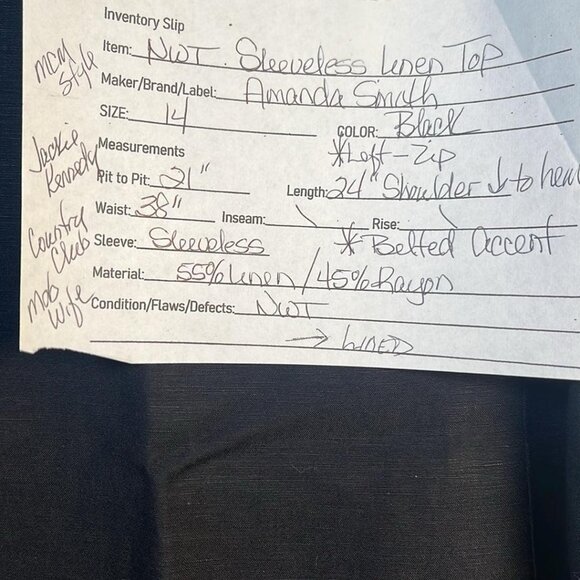 Inventory Slip
Item: NWT. Sleeveless Linen Top
Maker/Brand/Label: Amanda Smith
SIZE: 14 COLOR: Black
Measurements *Left-Zip
Pit to Pit: 21" Length: 24" Shoulder ↓ to hem
Waist: 38" Inseam: \ Rise: \
Sleeve: Sleeveless *Belted accent
Material: 55% Linen/45% Rayon
Condition/Flaws/Defects: NWT
→ LINED
MCM
Style
Jackie
Kennedy
Country
Club
Mob
Wife